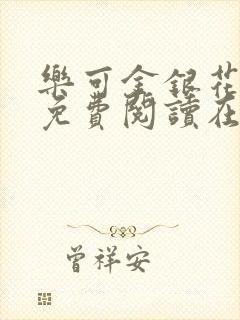 樂可金銀花
免費閱讀在
曾祥安